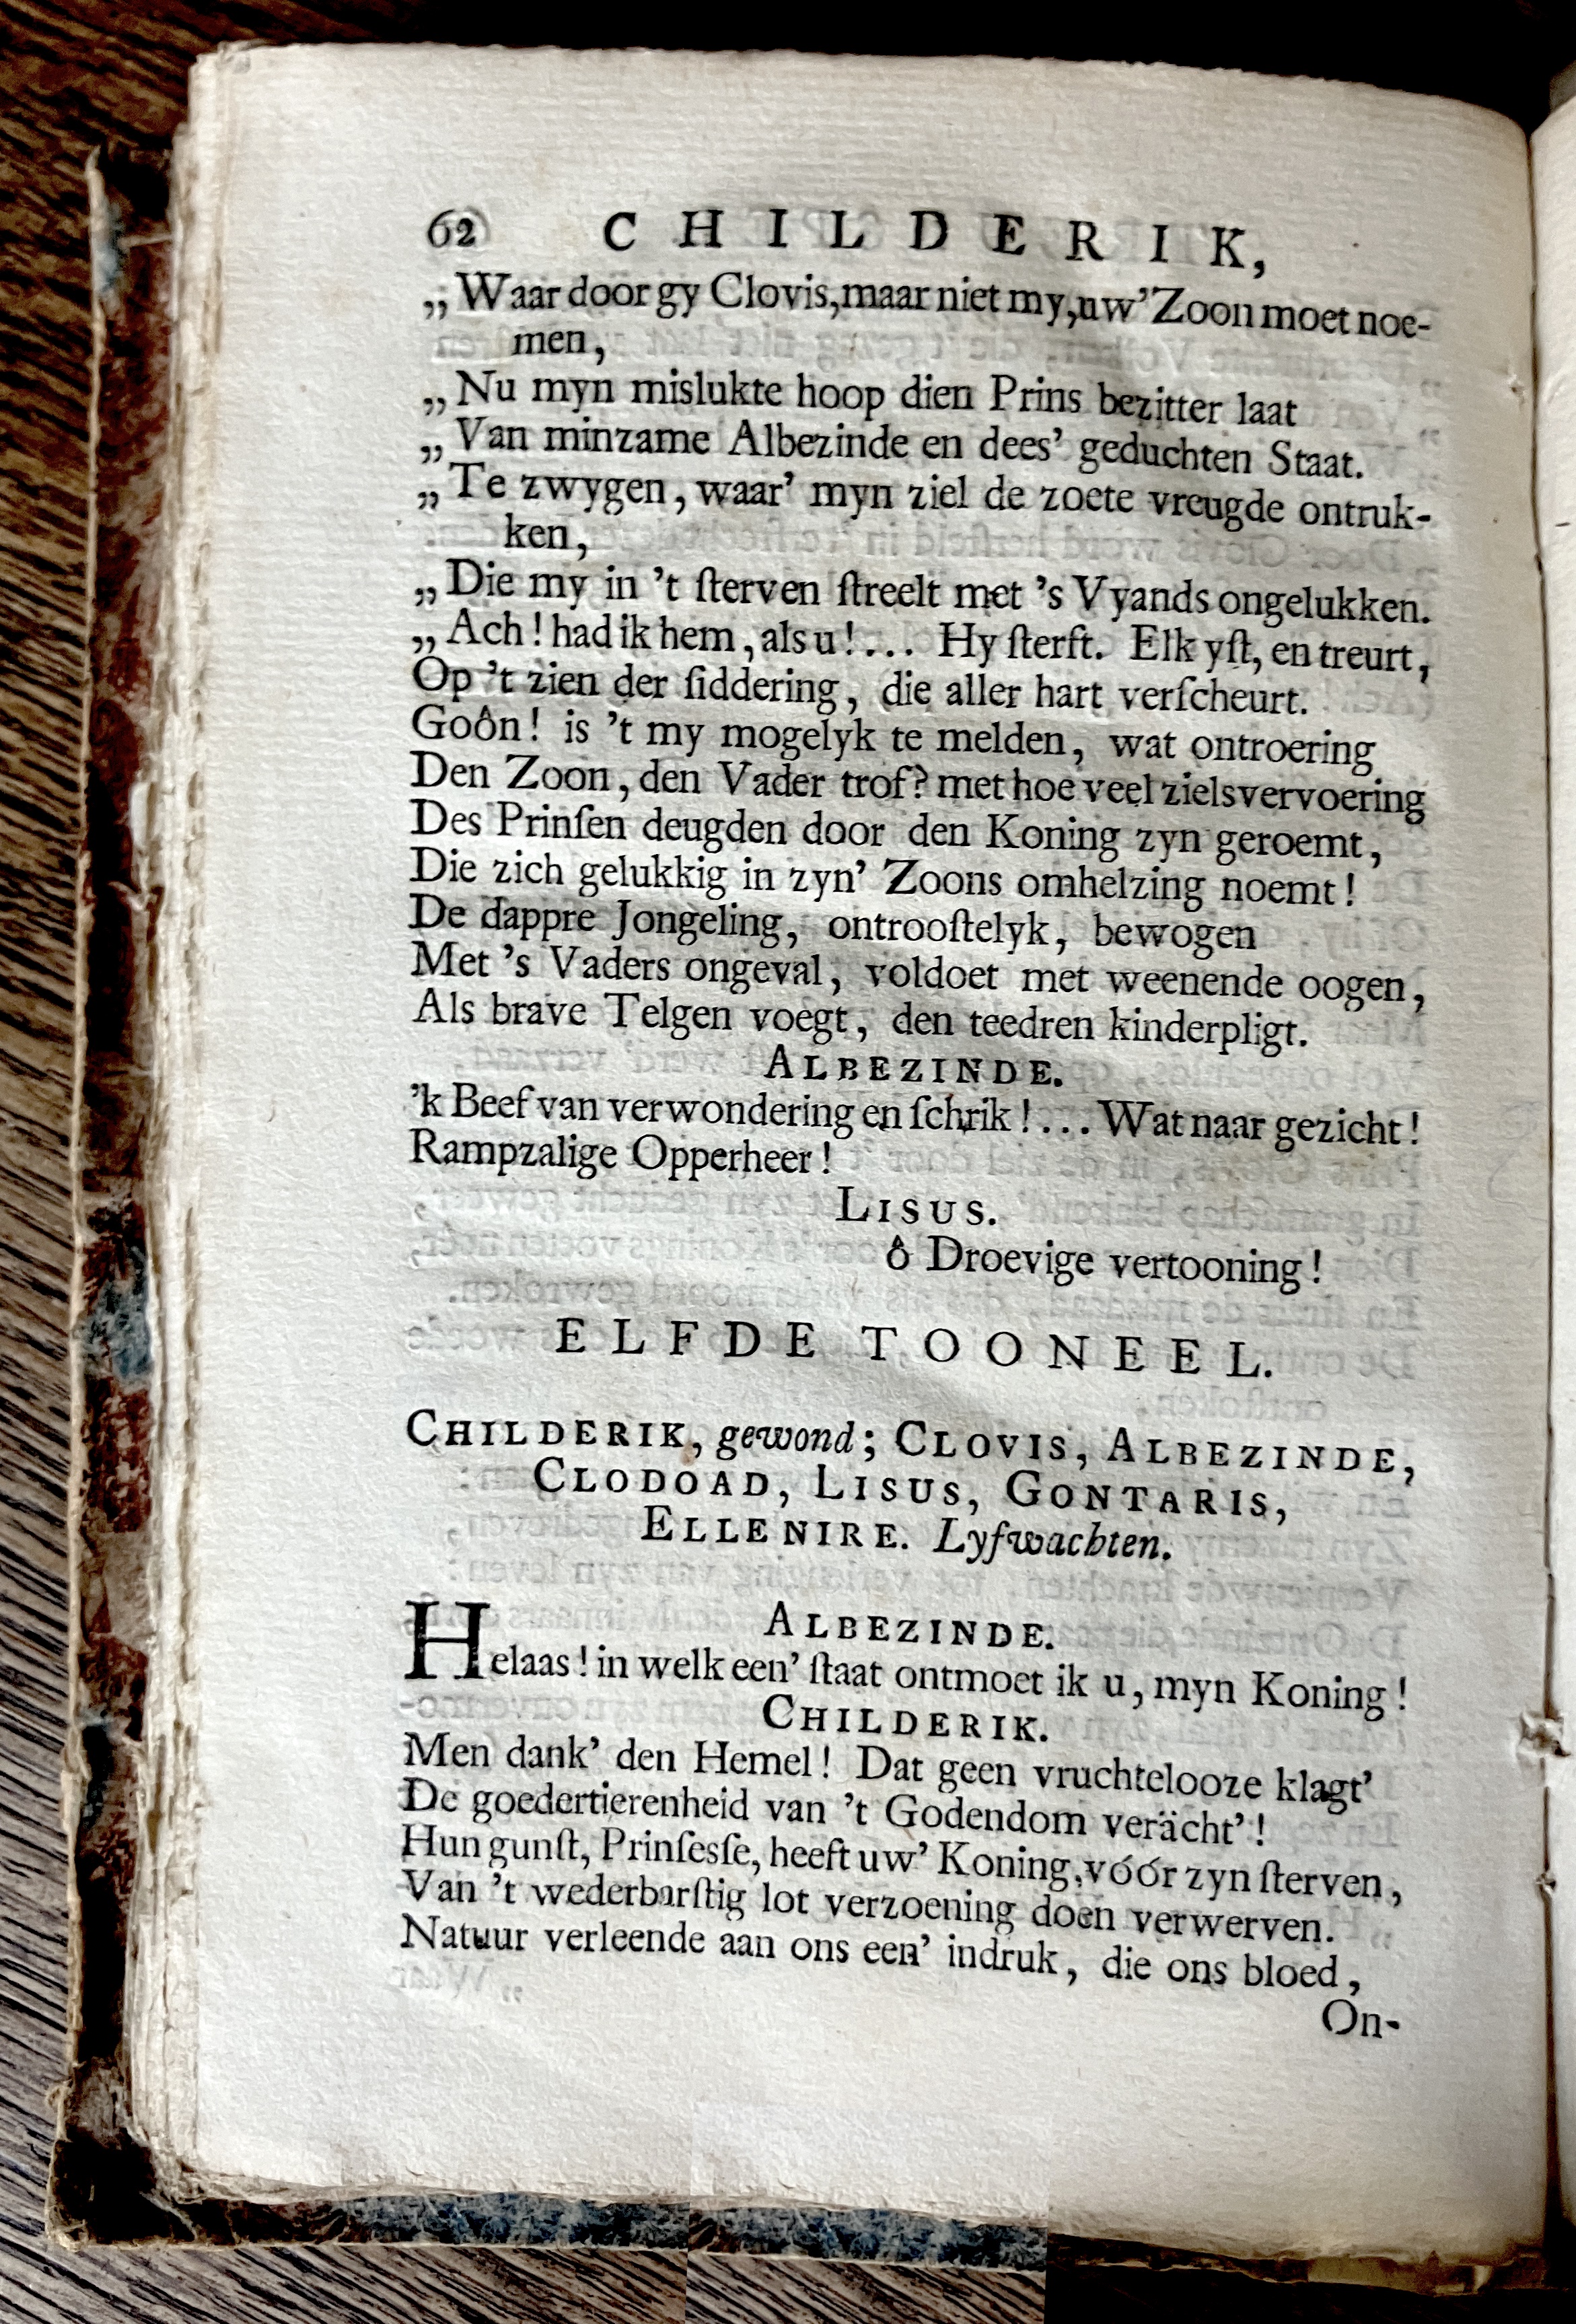 62 CHILDERIK,
„Waar door gy Clovis, maar niet my, uw' Zoon moet noe-
men,
„Nu myn mislukte hoop dien Prins bezitter laat
„Van minzame Albezinde en dees' geduchten Staat.
„Te zwygen, waar' myn ziel de zoete vreugde ontruk-
ken,
„Die my in 't ſterven ſtreelt met 's Vyands ongelukken.
„Ach! had ik hem, als u!... Hy ſterft. Elk yſt, en treurt,
Op 't zien der ſiddering, die aller hart verſcheurt.
Goôn! is 't my mogelyk te melden, wat ontroering
Den Zoon, den Vader trof? met hoe veel zielsvervoering
Des Prinſen deugden door den Koning zyn geroemt,
Die zich gelukkig in zyn' Zoons omhelzing noemt!
De dappre Jongeling, ontrooſtelyk, bewogen
Met 's Vaders ongeval, voldoet met weenende oogen,
Als brave Telgen voegt, den teedren kinderpligt.
ALBEZINDE.
'k Beef van verwondering en ſchrik!... Wat naar gezicht!
Rampzalige Opperheer!
LISUS.
ô Droevige vertooning!
ELFDE TOONEEL.
CHILDERIK, gewond; CLOVIS, ALBEZINDE,
CLODOAD, LISUS, GONTARIS,
ELLENIRE. Lyfwachten.
ALBEZINDE.
Helaas! in welk een' ſtaat ontmoet ik u, myn Koning!
CHILDERIK.
Men dank' den Hemel! Dat geen vruchtelooze klagt'
De goedertierenheid van 't Godendom verächt'!
Hun gunſt, Prinſesſe, heeft uw' Koning, vóór zyn ſterven,
Van 't wederbarſtig lot verzoening doen verwerven.
Natuur verleende aan ons een' indruk, die ons bloed,
On-